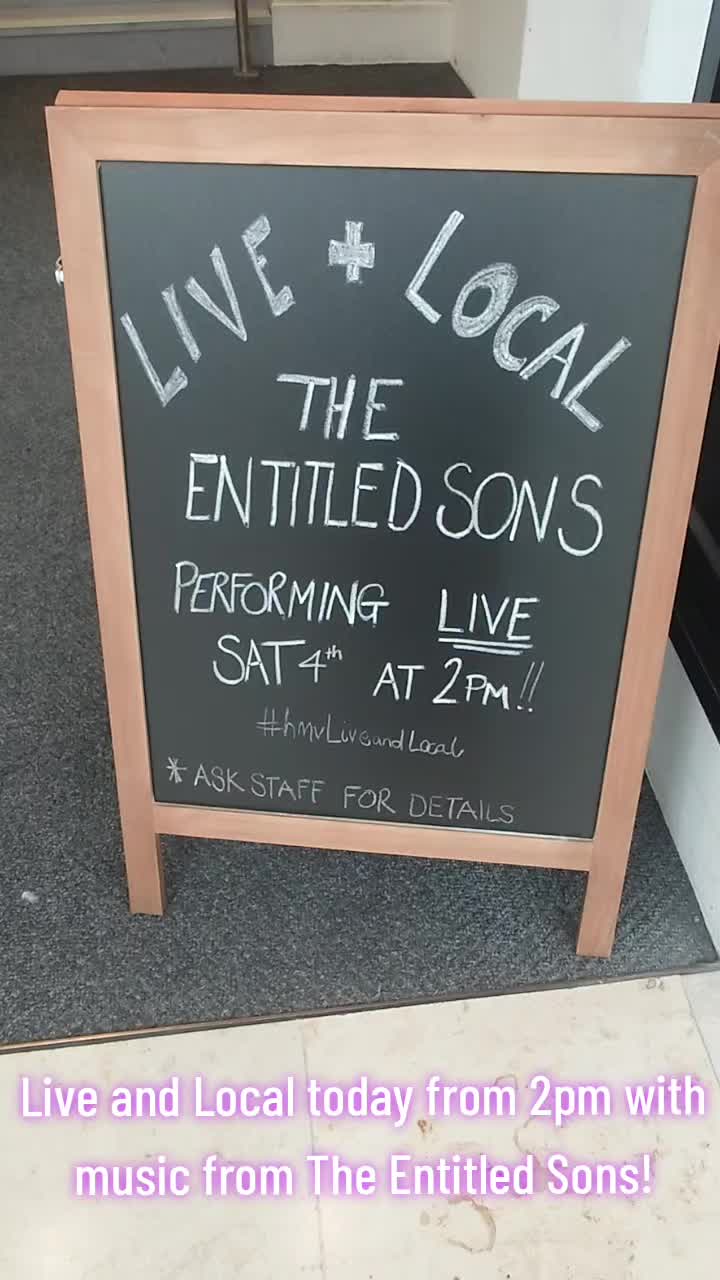 LIVE + LOCAL
THE
ENTITLED SONS
PERFORMING LIVE
SAT 4th AT 2PM!!
#hmvLiveandLocal
* ASK STAFF FOR DETAILS
Live and Local today from 2pm with
music from The Entitled Sons!